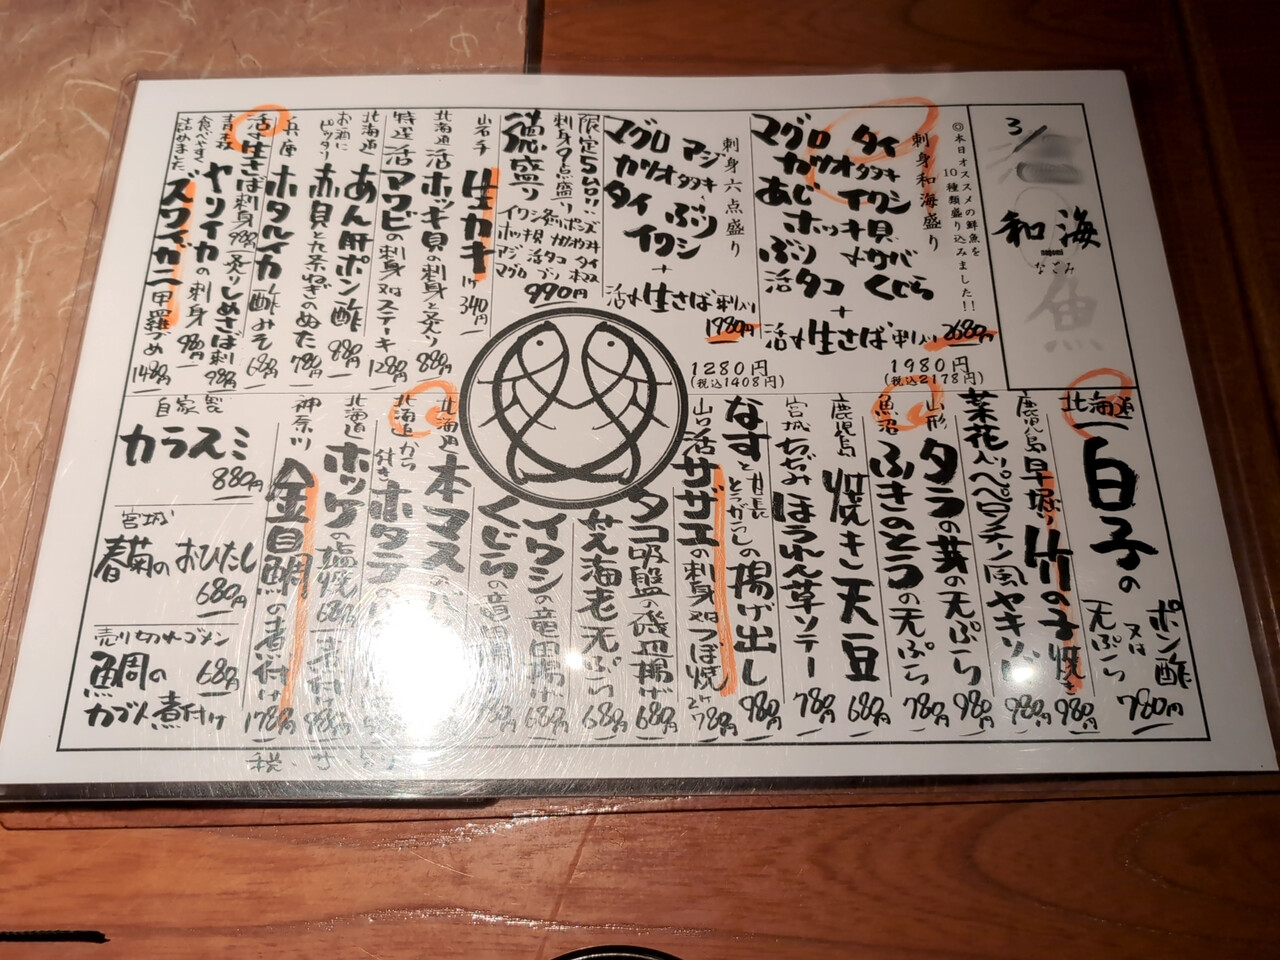 3/
和海
nagomi
なごみ
魚
◎本日オススメの鮮魚を
10種類盛り込みました!!
刺身和海盛り
タイ
カツオタタキ
イワシ
〆サバ
くじら
マグロ
あじ
ホッキ貝
ぶり
活タコ
+
活〆生さば刺入り 2680円
1980円
(税込2178円)
刺身六点盛り
マグロ
アジ
カツオタタキ
タイ
ぶり
イワシ
+
活〆生さば刺入り
1980円
1280円
(税込1408円)
限定5台り!!
刺身9点盛り
徳盛り
イワシ
ホッキ貝
活タコ
アジ
ブリ
マグロ
タイ
990円
岩手 生カキ 1ケ340円
北海道 活ホッキ貝の刺身と炙り 880円
特選 活アワビの刺身又はステーキ 1280円
北海道 あん肝ポン酢 880円
お酒にピッタリ 赤貝と九条ねぎのぬた 780円
兵庫 ホタルイカ酢みそ 680円
活〆生さば刺身 980円 炙りしめさば刺 980円
青森 ヤリイカの刺身 980円
食べやすく詰めました ズワイガニ甲羅づめ 1480円
北海道 白子のポン酢又は天ぷら 780円
鹿児島 早堀り竹の子焼き 980円
菜花入りペペロンチーノ風ヤキソバ 980円
山形 タラの芽の天ぷら 980円
魚沼 ふきのとうの天ぷら 780円
鹿児島 焼き天豆 680円
宮城 ちぢみほうれん草ソテー 780円
なすと甘長とうがらしの揚げ出し 980円
山口 活サザエの刺身又はつぼ焼 2ケ780円
タコ吸盤の磯辺揚げ 680円
芝海老天ぷら 680円
イワシの竜田揚げ 680円
くじらの竜田揚
北海道 本マスの
北海道から付き ホタテの
北海道 ホッケの塩焼 680円
神奈川 金目鯛の煮付け 1780円
自家製
カラスミ
880円
宮城
春菊のおひたし
680円
売り切れゴメン
鯛の
カブト煮付け
680円
税